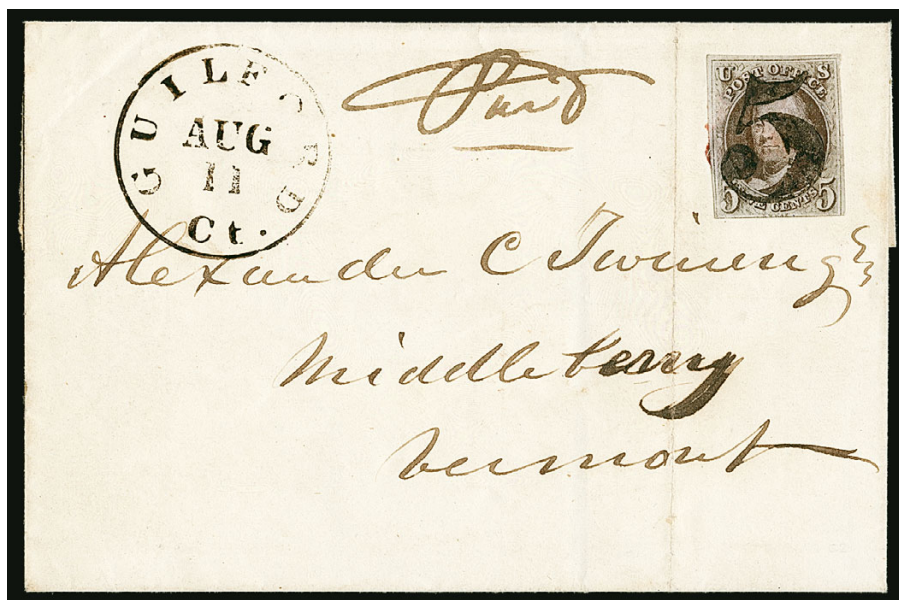 GUILFORD
AUG
11
Ct.
Paid
U S
POST OFFICE
5
FIVE CENTS
5 5
Alexander C Twining
Middlebery
Vermont